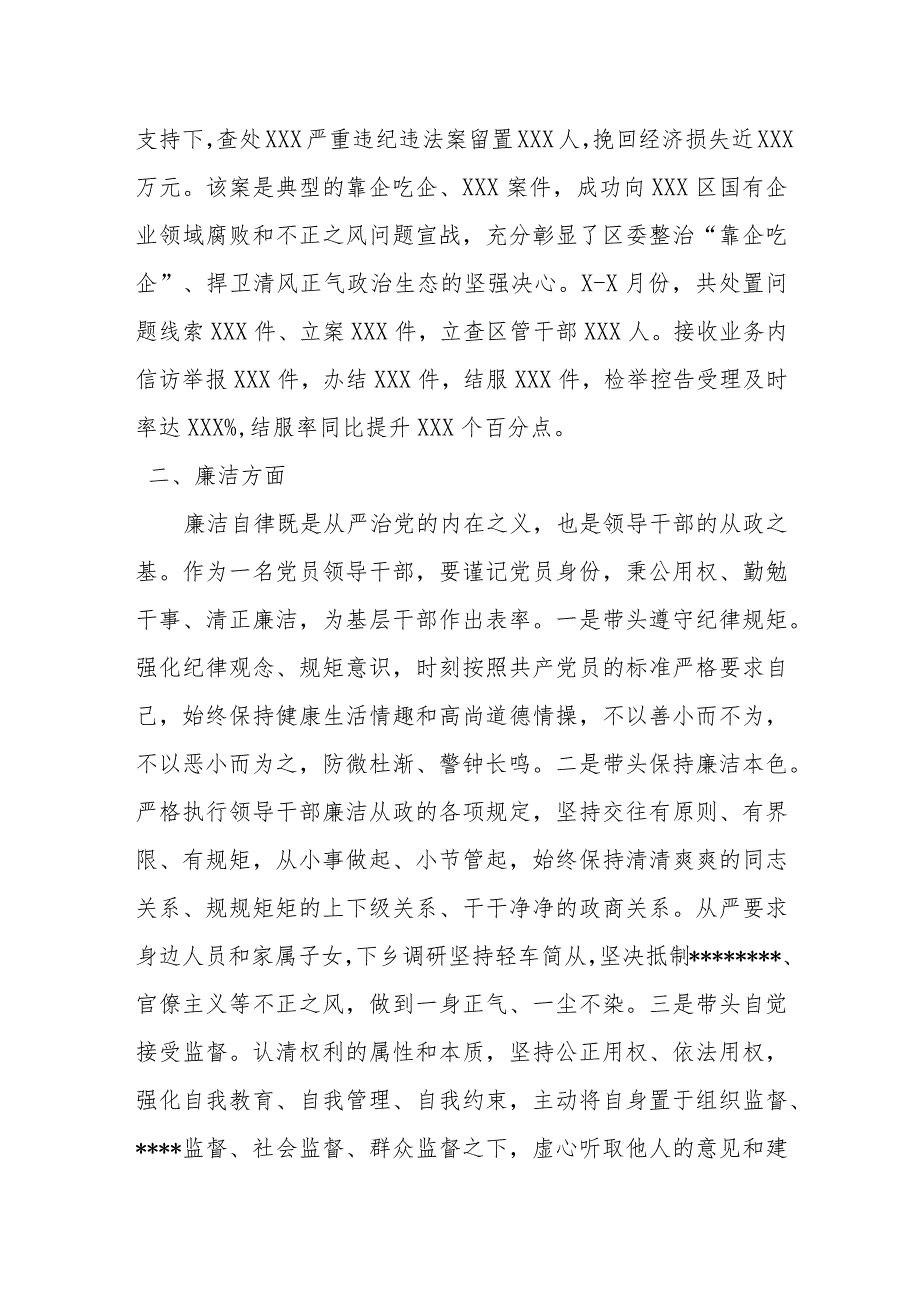 支持下,查处XXX严重违纪违法案留置XXX人,挽回经济损失近XXX
万元。该案是典型的靠企吃企、XXX案件，成功向XXX区国有企
业领域腐败和不正之风问题宣战，充分彰显了区委整治“靠企吃
企”、捍卫清风正气政治生态的坚强决心。X-X月份，共处置问
题线索XXX件、立案XXX件，立查区管干部XXX人。接收业务内
信访举报XXX件，办结XXX件，结服XXX件，检举控告受理及时
率达XXX%,结服率同比提升XXX个百分点。
二、廉洁方面
廉洁自律既是从严治党的内在之义，也是领导干部的从政之
基。作为一名党员领导干部，要谨记党员身份，秉公用权、勤勉
干事、清正廉洁，为基层干部作出表率。一是带头遵守纪律规矩。
强化纪律观念、规矩意识，时刻按照共产党员的标准严格要求自
己，始终保持健康生活情趣和高尚道德情操，不以善小而不为，
不以恶小而为之，防微杜渐、警钟长鸣。二是带头保持廉洁本色。
严格执行领导干部廉洁从政的各项规定，坚持交往有原则、有界
限、有规矩，从小事做起、小节管起，始终保持清清爽爽的同志
关系、规规矩矩的上下级关系、干干净净的政商关系。从严要求
身边人员和家属子女,下乡调研坚持轻车简从,坚决抵制********、
官僚主义等不正之风，做到一身正气、一尘不染。三是带头自觉
接受监督。认清权利的属性和本质，坚持公正用权、依法用权，
强化自我教育、自我管理、自我约束，主动将自身置于组织监督、
****监督、社会监督、群众监督之下，虚心听取他人的意见和建